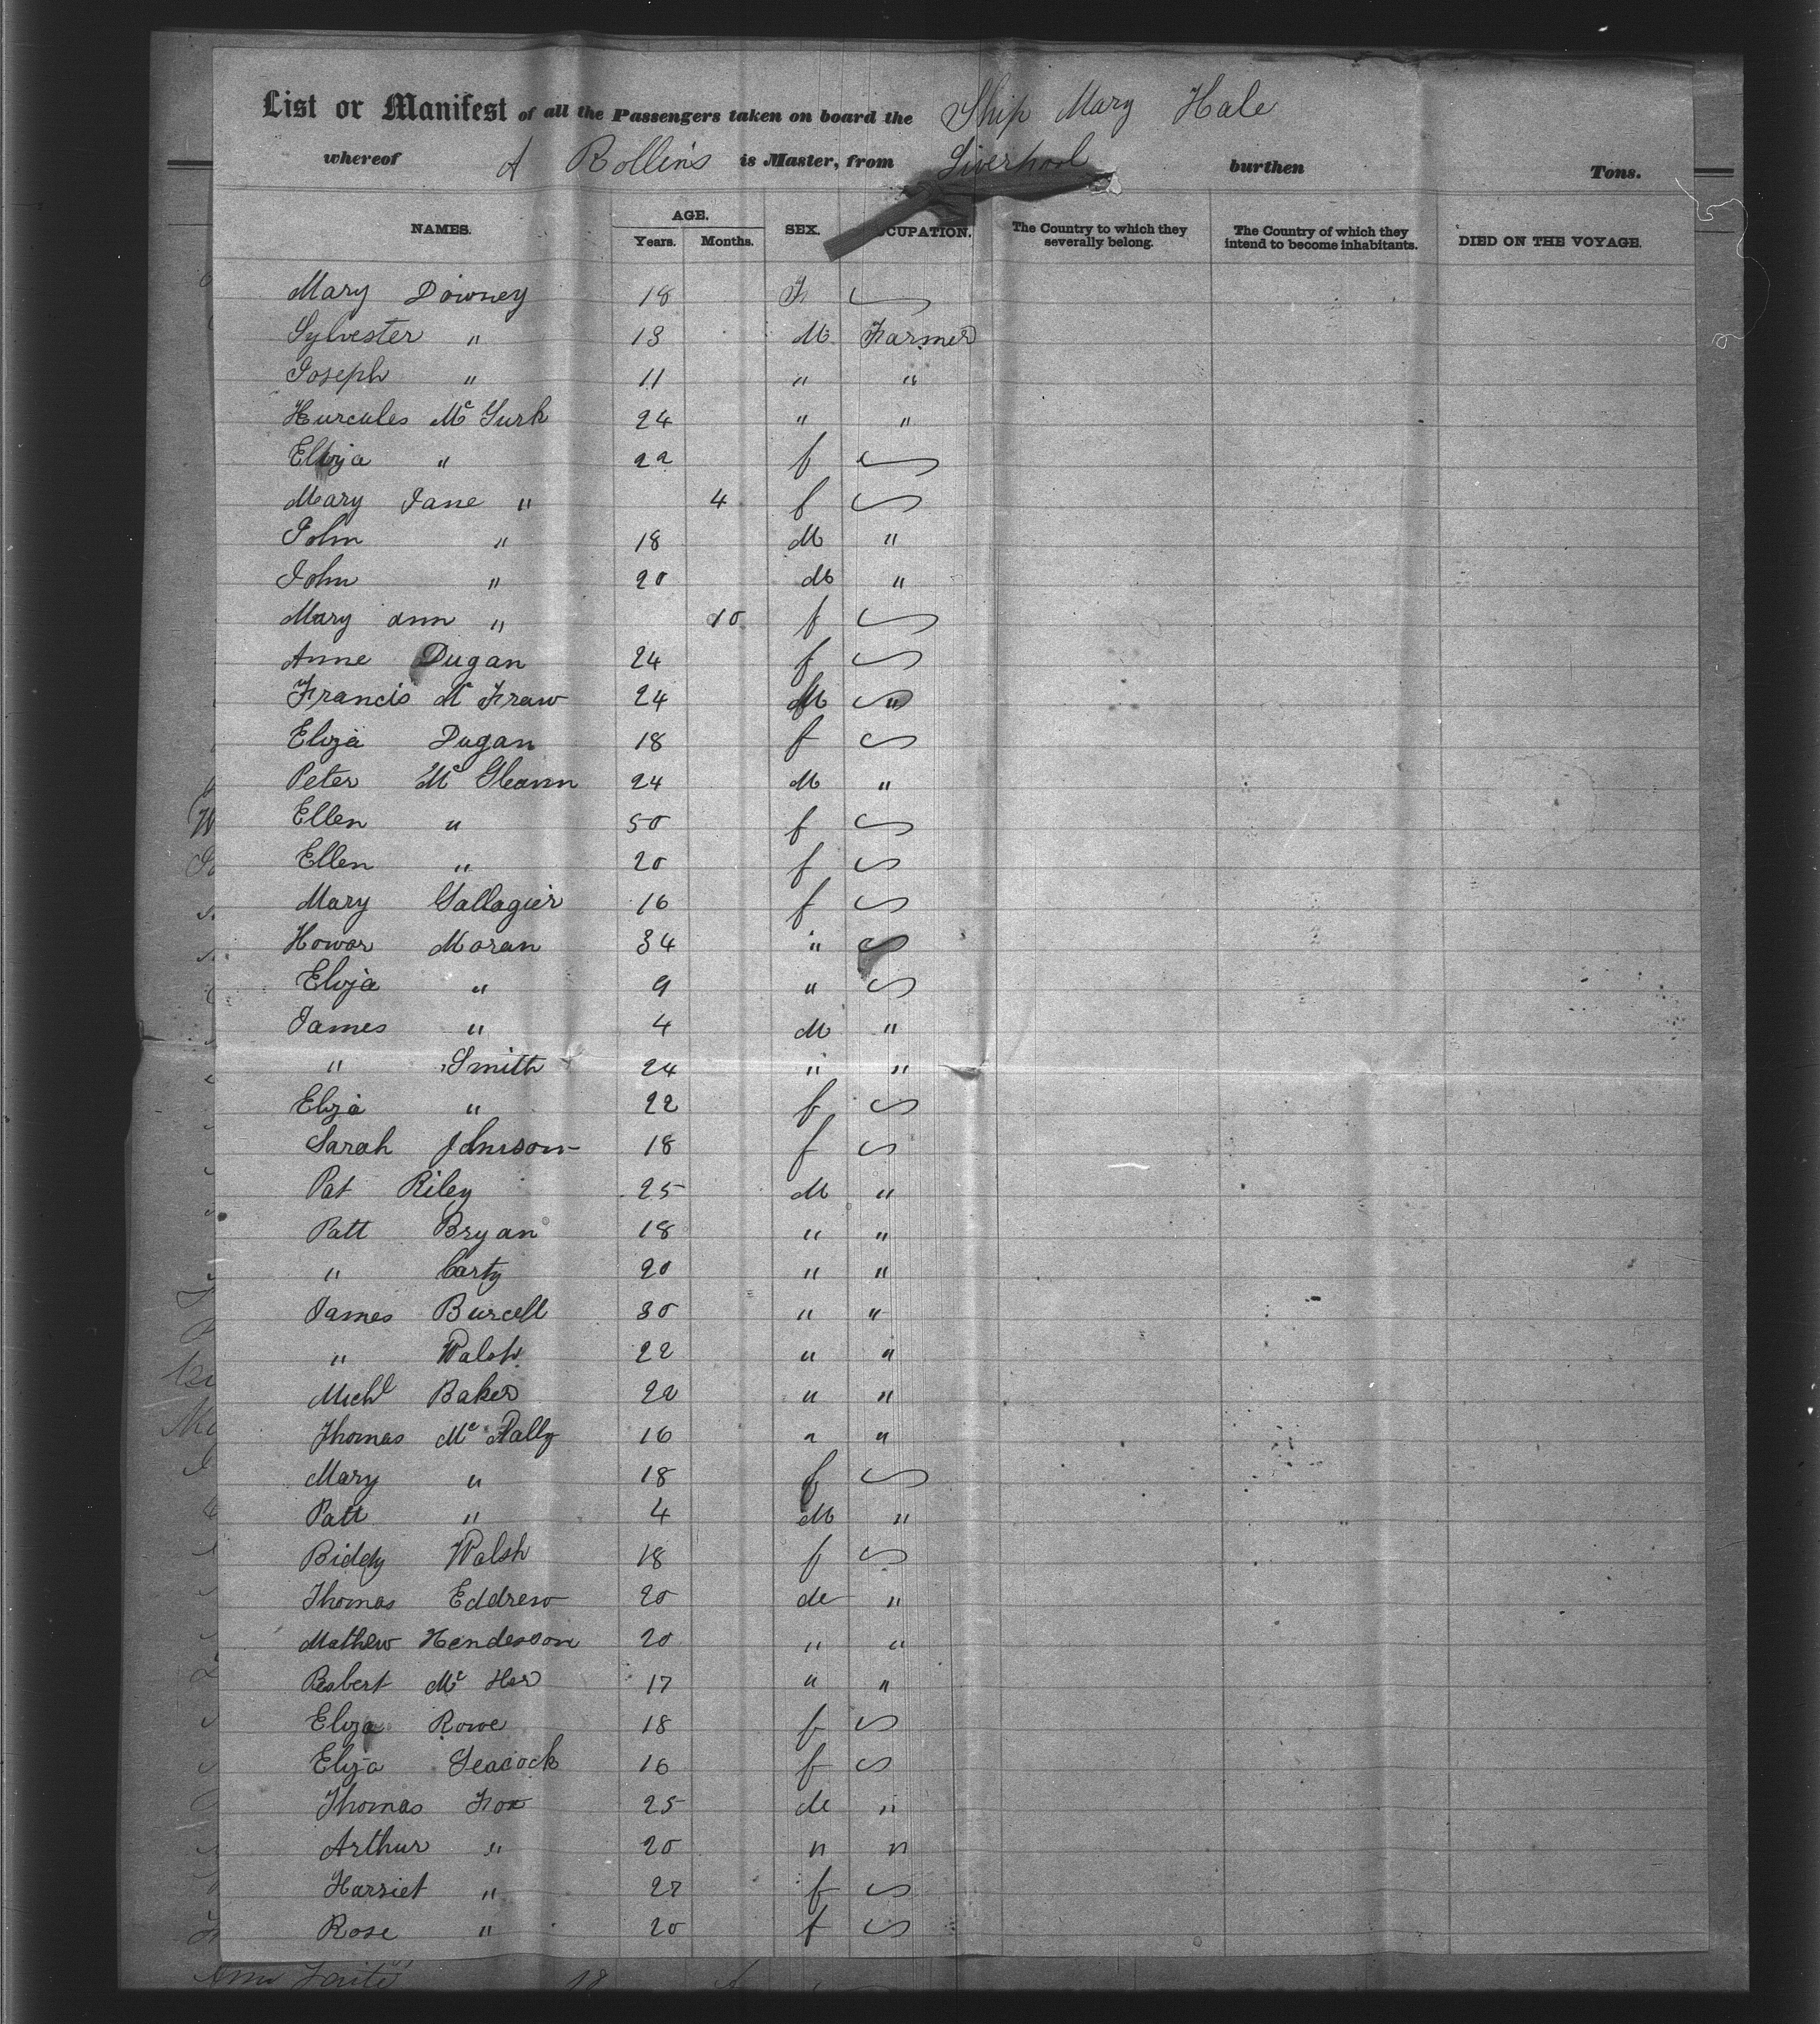 List or Manifest of all the Passengers taken on board the Ship Mary Hale
whereof A Rollins is Master, from Liverpool burthen Tons.
NAMES. AGE. Years. Months. SEX. OCCUPATION. The Country to which they severally belong. The Country of which they intend to become inhabitants. DIED ON THE VOYAGE.
Mary Downey 18 F
Sylvester " 13 M Farmer
Joseph " 11 " "
Hurcules Mc Gurk 24 " "
Eliza " 22 f
Mary Jane " 4 f
John " 18 M "
John " 20 M "
Mary Ann " 10 f
Anne Dugan 24 f
Francis Mc Fraw 24 M "
Eliza Dugan 18 f
Peter Mc Gleann 24 M "
Ellen " 50 f
Ellen " 20 f
Mary Gallagier 16 f
Howor Moran 34 "
Eliza " 9 "
James " 4 M "
" Smith 24 " "
Eliza " 22 f
Sarah Johnson 18 f
Pat Riley 25 M "
Patt Bryan 18 " "
" Carty 20 " "
James Burcell 30 " "
" Walsh 22 " "
Michl Baker 22 " "
Thomas Mc Nally 16 " "
Mary " 18 f
Patt " 4 M "
Biddy Walsh 18 f
Thomas Eddrew 20 M "
Mathew Henderson 20 " "
Robert Mc Her 17 " "
Eliza Rowe 18 f
Eliza Seacock 16 f
Thomas Fox 25 M "
Arthur " 20 " "
Harriet " 27 f
Rose " 20 f